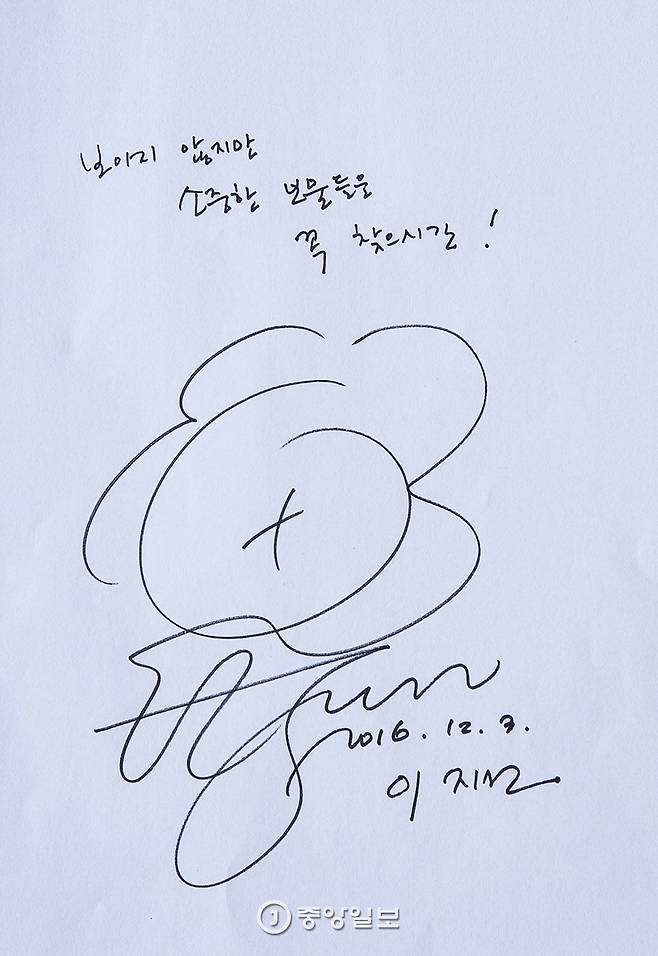 보이지 않지만
소중한 보물들을
꼭 찾으시길!
2016. 12. 3.
이지선
중앙일보